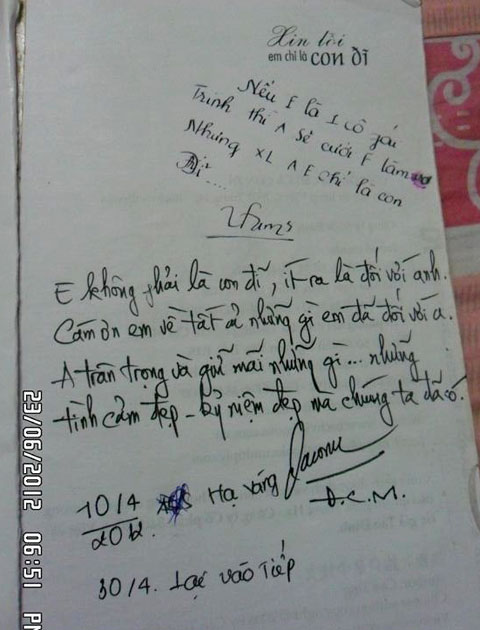 Xin lỗi
em chỉ là con đĩ
Nếu E là 1 cô gái
Trinh thì A sẽ cưới E làm vợ
Nhưng XL A E chỉ là con
Đĩ....
E không phải là con đĩ, ít ra là đối với anh.
Cảm ơn em về tất cả những gì em đã đối với a.
A trân trọng và giữ mãi những gì... những
tình cảm đẹp - kỷ niệm đẹp mà chúng ta đã có.
10/4 Hạ vàng
2012.
D.C.M.
30/4. Lại vào Tiếp
23/06/2012 06:51 PM